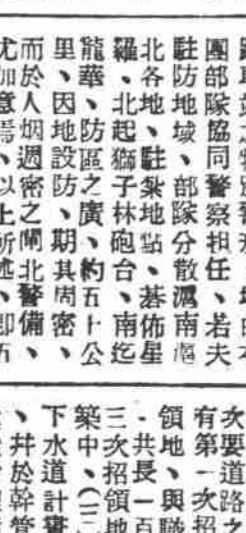 團部隊協同警察担任、若夫
駐防地域、部隊分散滬南滬
北各地、駐紮地點、碁佈星
羅、北起獅子林砲台、南迄
龍華、防區之廣、約五十公
里、因地設防、期其周密、
而於人烟週密之閘北警備、
尤加意焉、以上所述、卽五
次要道路之
有第一次招
領地、與職
・共長一百
三次招領地
築中、(二
下水道計畫
、幷於幹管